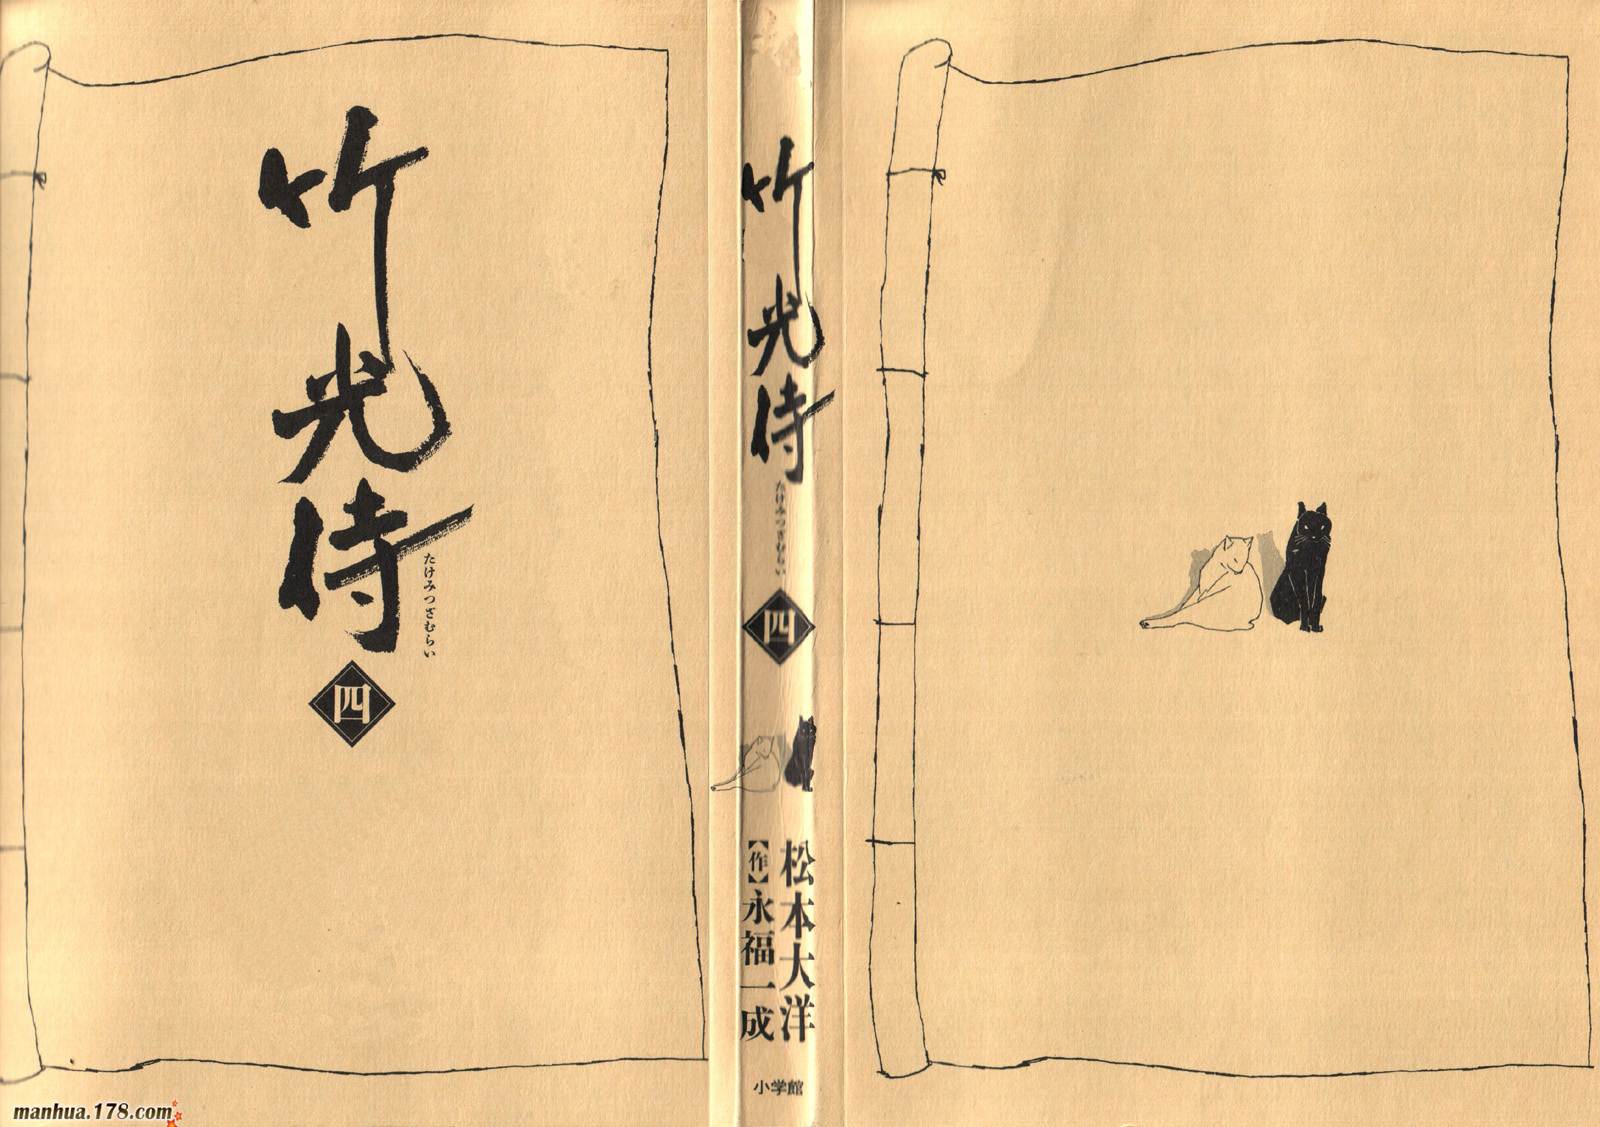 竹光侍
たけみつざむらい
四
竹光侍
たけみつざむらい
四
松本大洋
【作】永福一成
小学館
manhua.178.com